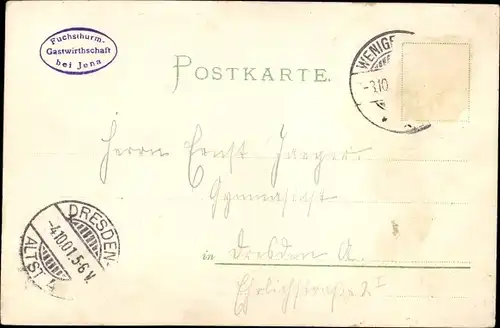 Fuchsthurm-
Gastwirthschaft
bei Jena
POSTKARTE.
WENIGE
-3.10
Herrn Ernst Jaeger.
Gymnasiast
in Dresden A.
Ehrlichstraße 2 I
DRESDEN-
-4.10.01.5-6V.
ALTST.